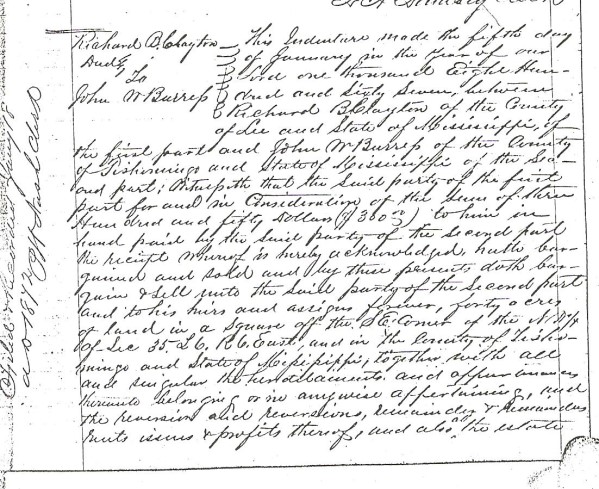 Richard B. Clayton
Deed
To
John W Burress
This Indenture made the fifth day
of January in the year of our
Lord one thousand Eight Hun-
dred and sixty seven, between
Richard B. Clayton of the County
of Lee and State of Mississippi, of
the first part and John W Burress of the County
of Tishomingo and State of Mississippi of the Sec-
ond part; Witnesseth that the said party of the first
part for and in Consideration of the sum of three
Hundred and fifty Dollars ($350 00) to him in
hand paid by the said party of the second part
the receipt whereof is hereby acknowledged, hath bar-
gained and sold and by these presents doth bar-
gain & sell unto the said party of the second part
and to his heirs and assigns forever, forty acres
of land in a Square off the S.E. Corner of the N.W. 1/4
of Sec 35. T. 6, R. 6 East, and in the County of Tisho-
mingo and State of Mississippi, together with all
and singular the hereditaments and appurtenances
thereunto belonging or in anywise appertaining, and
the reversion and reversions, remainder & remainders
rents issues & profits thereof, and also the estate